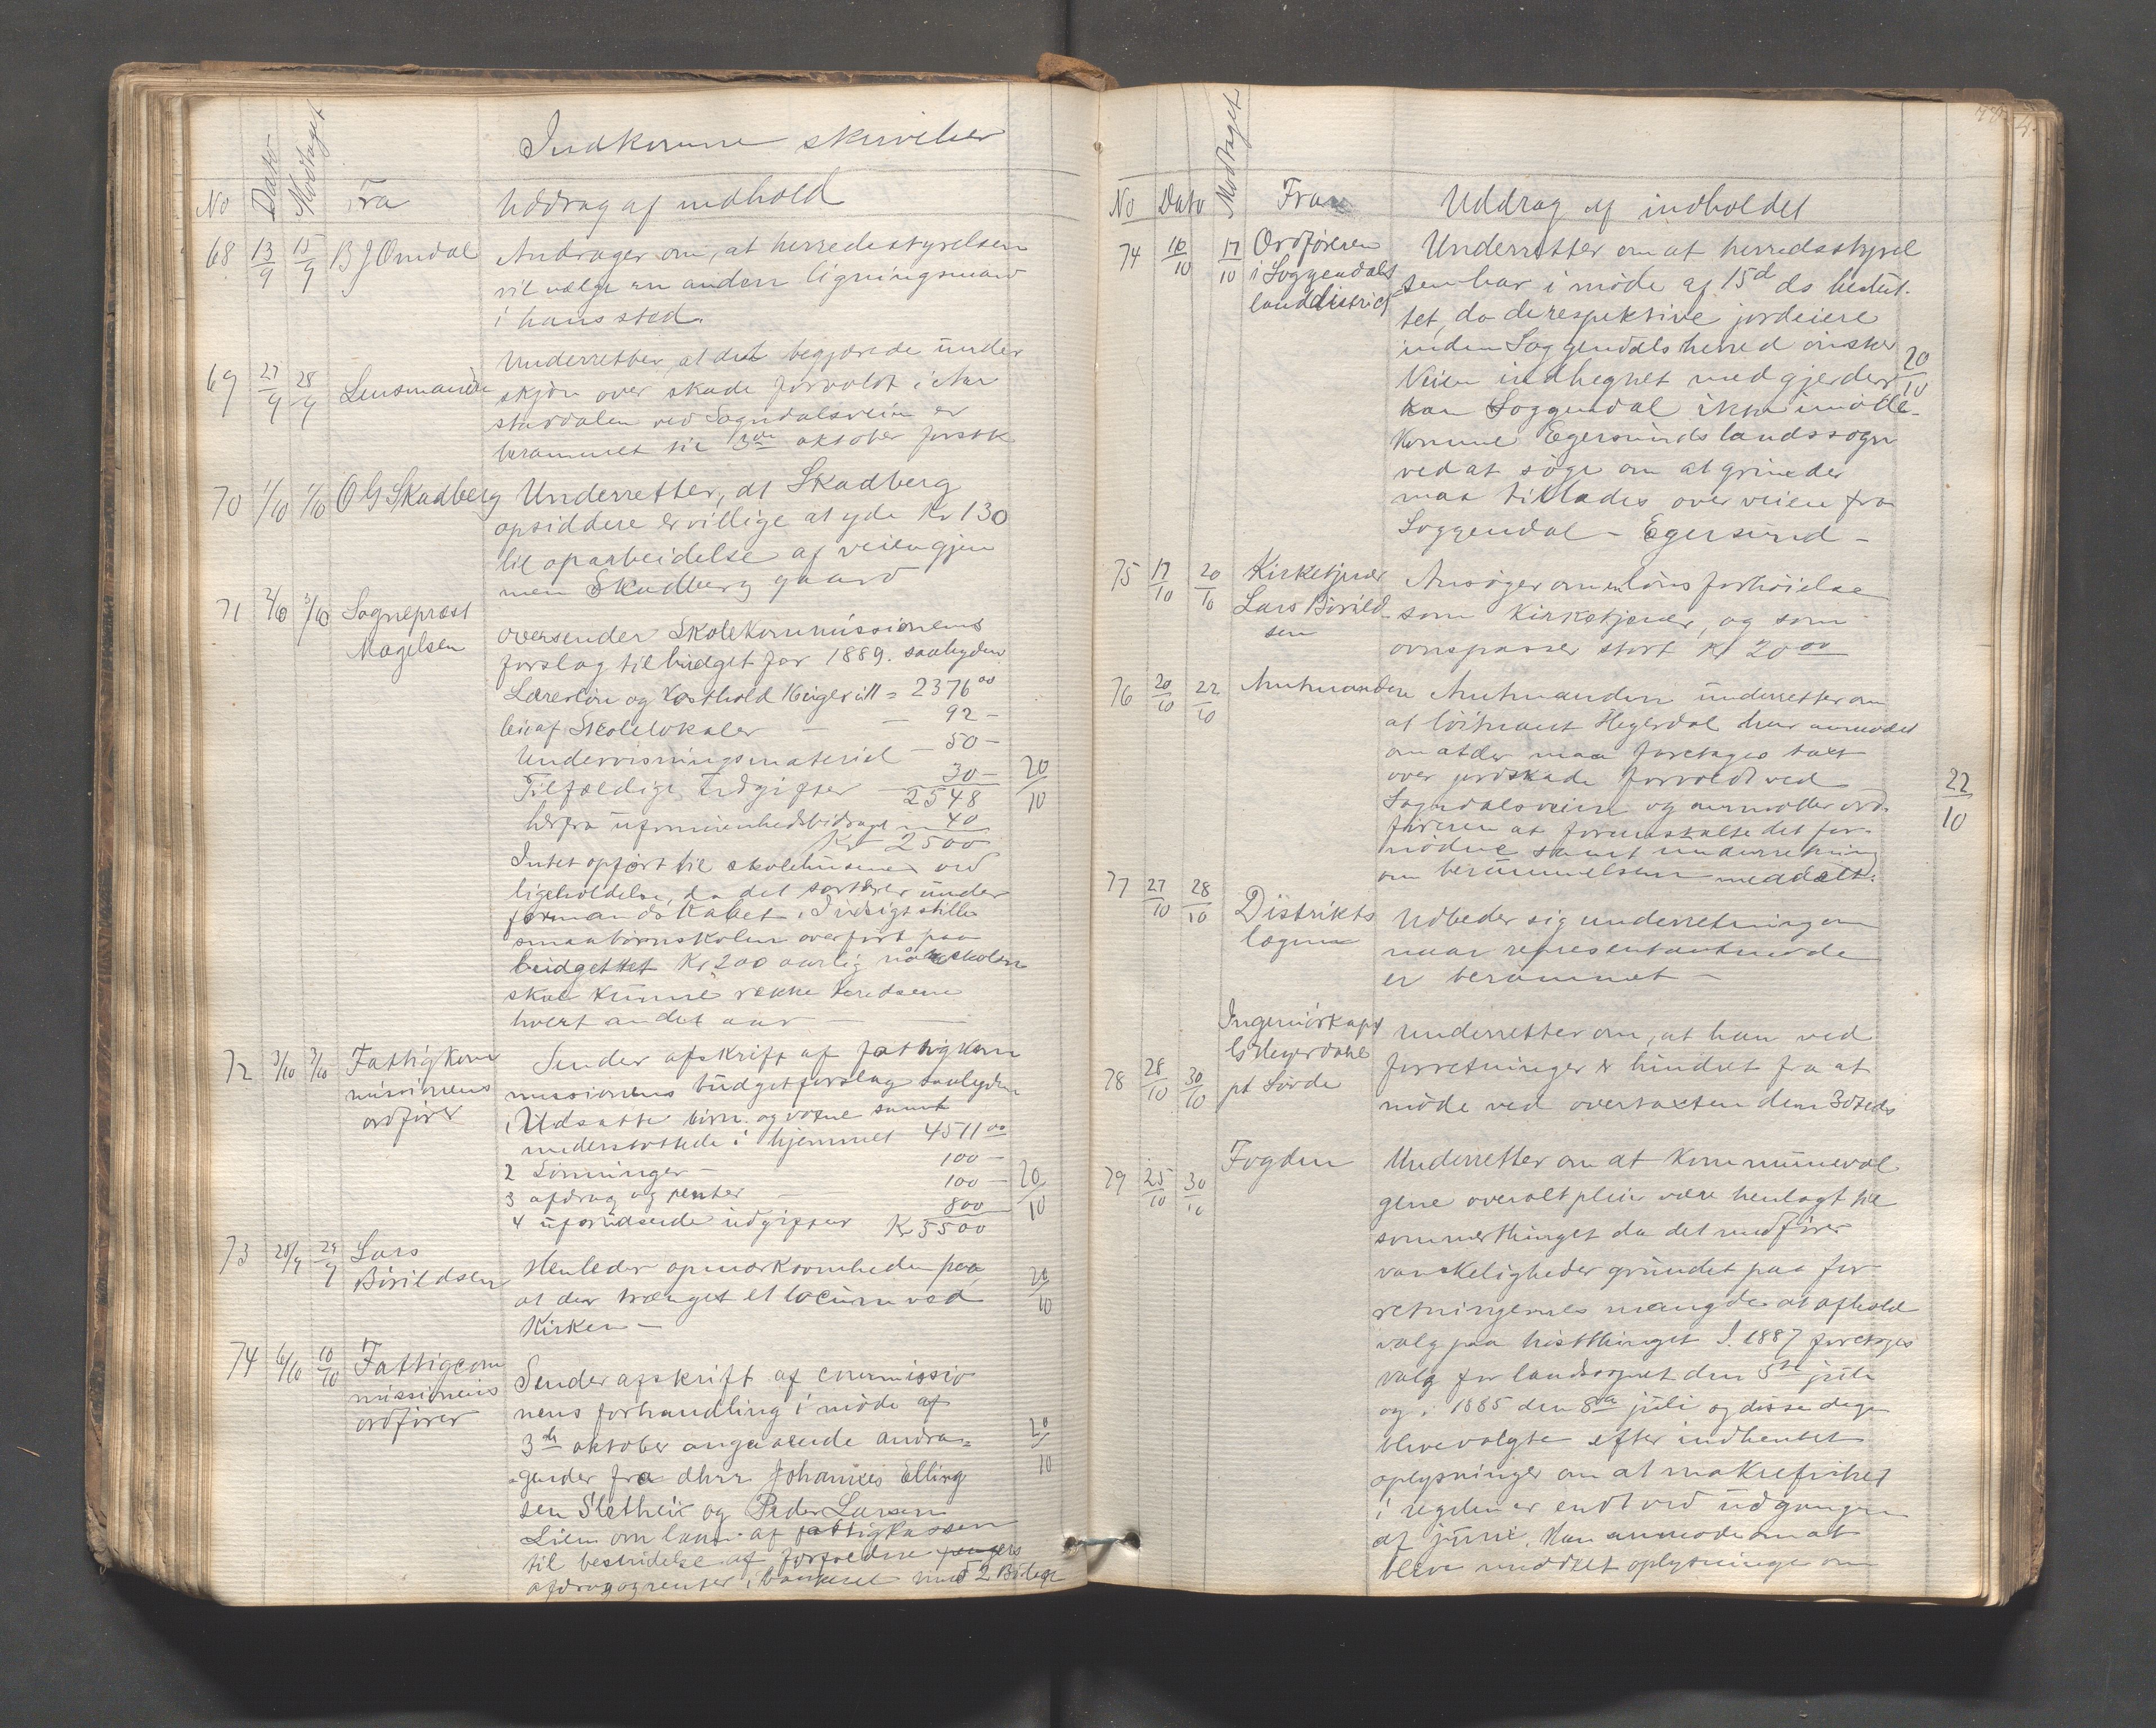 Indkomne skrivelser
No Dato Modtaget Fra Uddrag af indhold
68 13/9 15/9 B J Omdal Andrager om, at herredsstyrelsen
vil vælge en anden ligningsmand
i hans sted.
69 27/9 28/9 Lensmanden Underretter, at det begjærede under
skjön over skade forvoldt i
ved Sogndalsveien er
berammet til 3die oktober förstk
70 1/10 1/10 O G Skadberg Underretter, at Skadberg
opsiddere er villige at yde Kr 130
til oparbeidelse af veien gjen
nem Skadberg gaard
71 2/10 3/10 Sognepræst
Magelsen
oversender Skolekommissionens
forslag til budget for 1889. saalyden
Lærerlön og Kosthold 16 uger á 11 = 2376 00
leie af Skolelokaler — 92 –
Undervisningsmateriel — 50 –
Tilfældige Udgifter — 30 –
2548
20/10
herfra uformuenhedsbidraget — 40
Kr 2500
Intet opfört til skolehusenes ved
ligeholdelse, da det sorterer under
formandskabet. I udsigt stilles
smaabörnskolen overfört paa
budgettet Kr 200 aarlig når skolen
skal kunne række kredsene
hvert andet aar —
72 3/10 3/10 Fattigkom
missionens
ordförer
Sender afskrift af fattigkom
missionens budgetforslag saalyden
1 Udsatte börn og voxne samt
understöttede i hjemmet 4511 00
2 Lönninger – 100 –
3 afdrag og renter – 100 –
4 uforudseede udgifter 800
Kr 5500
20/10
73 28/9 29/9 Lars
Börildsen
Henleder opmærksomheden paa
at der trænges et locum ved
Kirken –
20/10
74 6/10 10/10 Fattigcom
missionens
ordförer
Sender afskrift af commissio
nens forhandling i möde af
3de oktober angaaende andra=
gender fra dhrr Johannes Elling
sen Sletheii og Peder Larsen
Lien om laan af fattigkassen
til bestridelse af forfaldne penges
afdrag og renter i banken med 2 Bilage
20/10
No Dato Modtaget Fra Uddrag af indholdet
74 16/10 17/10 Ordföreren
i Soggendals
landdistrict
Underretter om at herredsstyrel
sen har i möde af 15d ds beslut-
tet, da de respektive jordeiere
inden Soggendals herred önsker
Veien indhegnet med gjerder
kan Soggendal ikke imöde-
komme Egersunds landssogn
ved at söge om at grinder
maa tillades over veien fra
Soggendal – Egersund –
20/10
75 17/10 20/10 Kirketjener
Lars Börild-
sen
Ansöger om en löns forhöielse
som Kirketjener, og som
ovnspasser stort Kr 20 00
76 20/10 22/10 Amtmanden Amtmanden underretter om
at löitnant Hegerdal har anmodet
om at der maa foretages taxt
over jordskade forvoldt ved
Sogndalsveien og anmoder ord-
föreren at foranstalte det for-
nödne samt underretning
om berammelsen meddelt.
22/10
77 27/10 28/10 Distrikts
lægen
Udbeder sig underretning om
naar representantmöde
er berammet –
78 28/10 30/10 Ingeniörkapt
G Heyerdahl
pt Sirde
Underretter om, at han ved
forretninger er hindret fra at
möde ved overtaxten den 30te ds
79 25/10 30/10 Fogden Underretter om at Kommuneval
gene overalt pleier være henlagt til
sommerthinget da det medförer
vanskeligheder grundet paa for
retningernes mængde at afholde
valg paa hösttinget I. 1887 foretoges
valg for landsognet den 5te juli
og i 1885 den 8de juli og disse dage
bleve valgte efter indhentet
oplysninger om at makrefisket
i regelen er endt ved udgangen
af juni. Han anmoder om at
blive meddelt oplysninger om